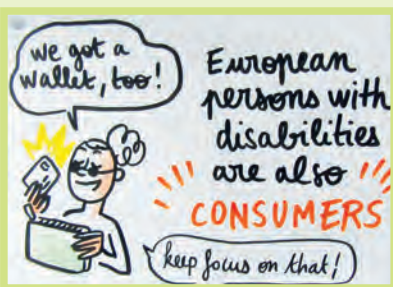 we got a
wallet, too!
European
persons with
disabilities
are also
CONSUMERS
keep focus on that!